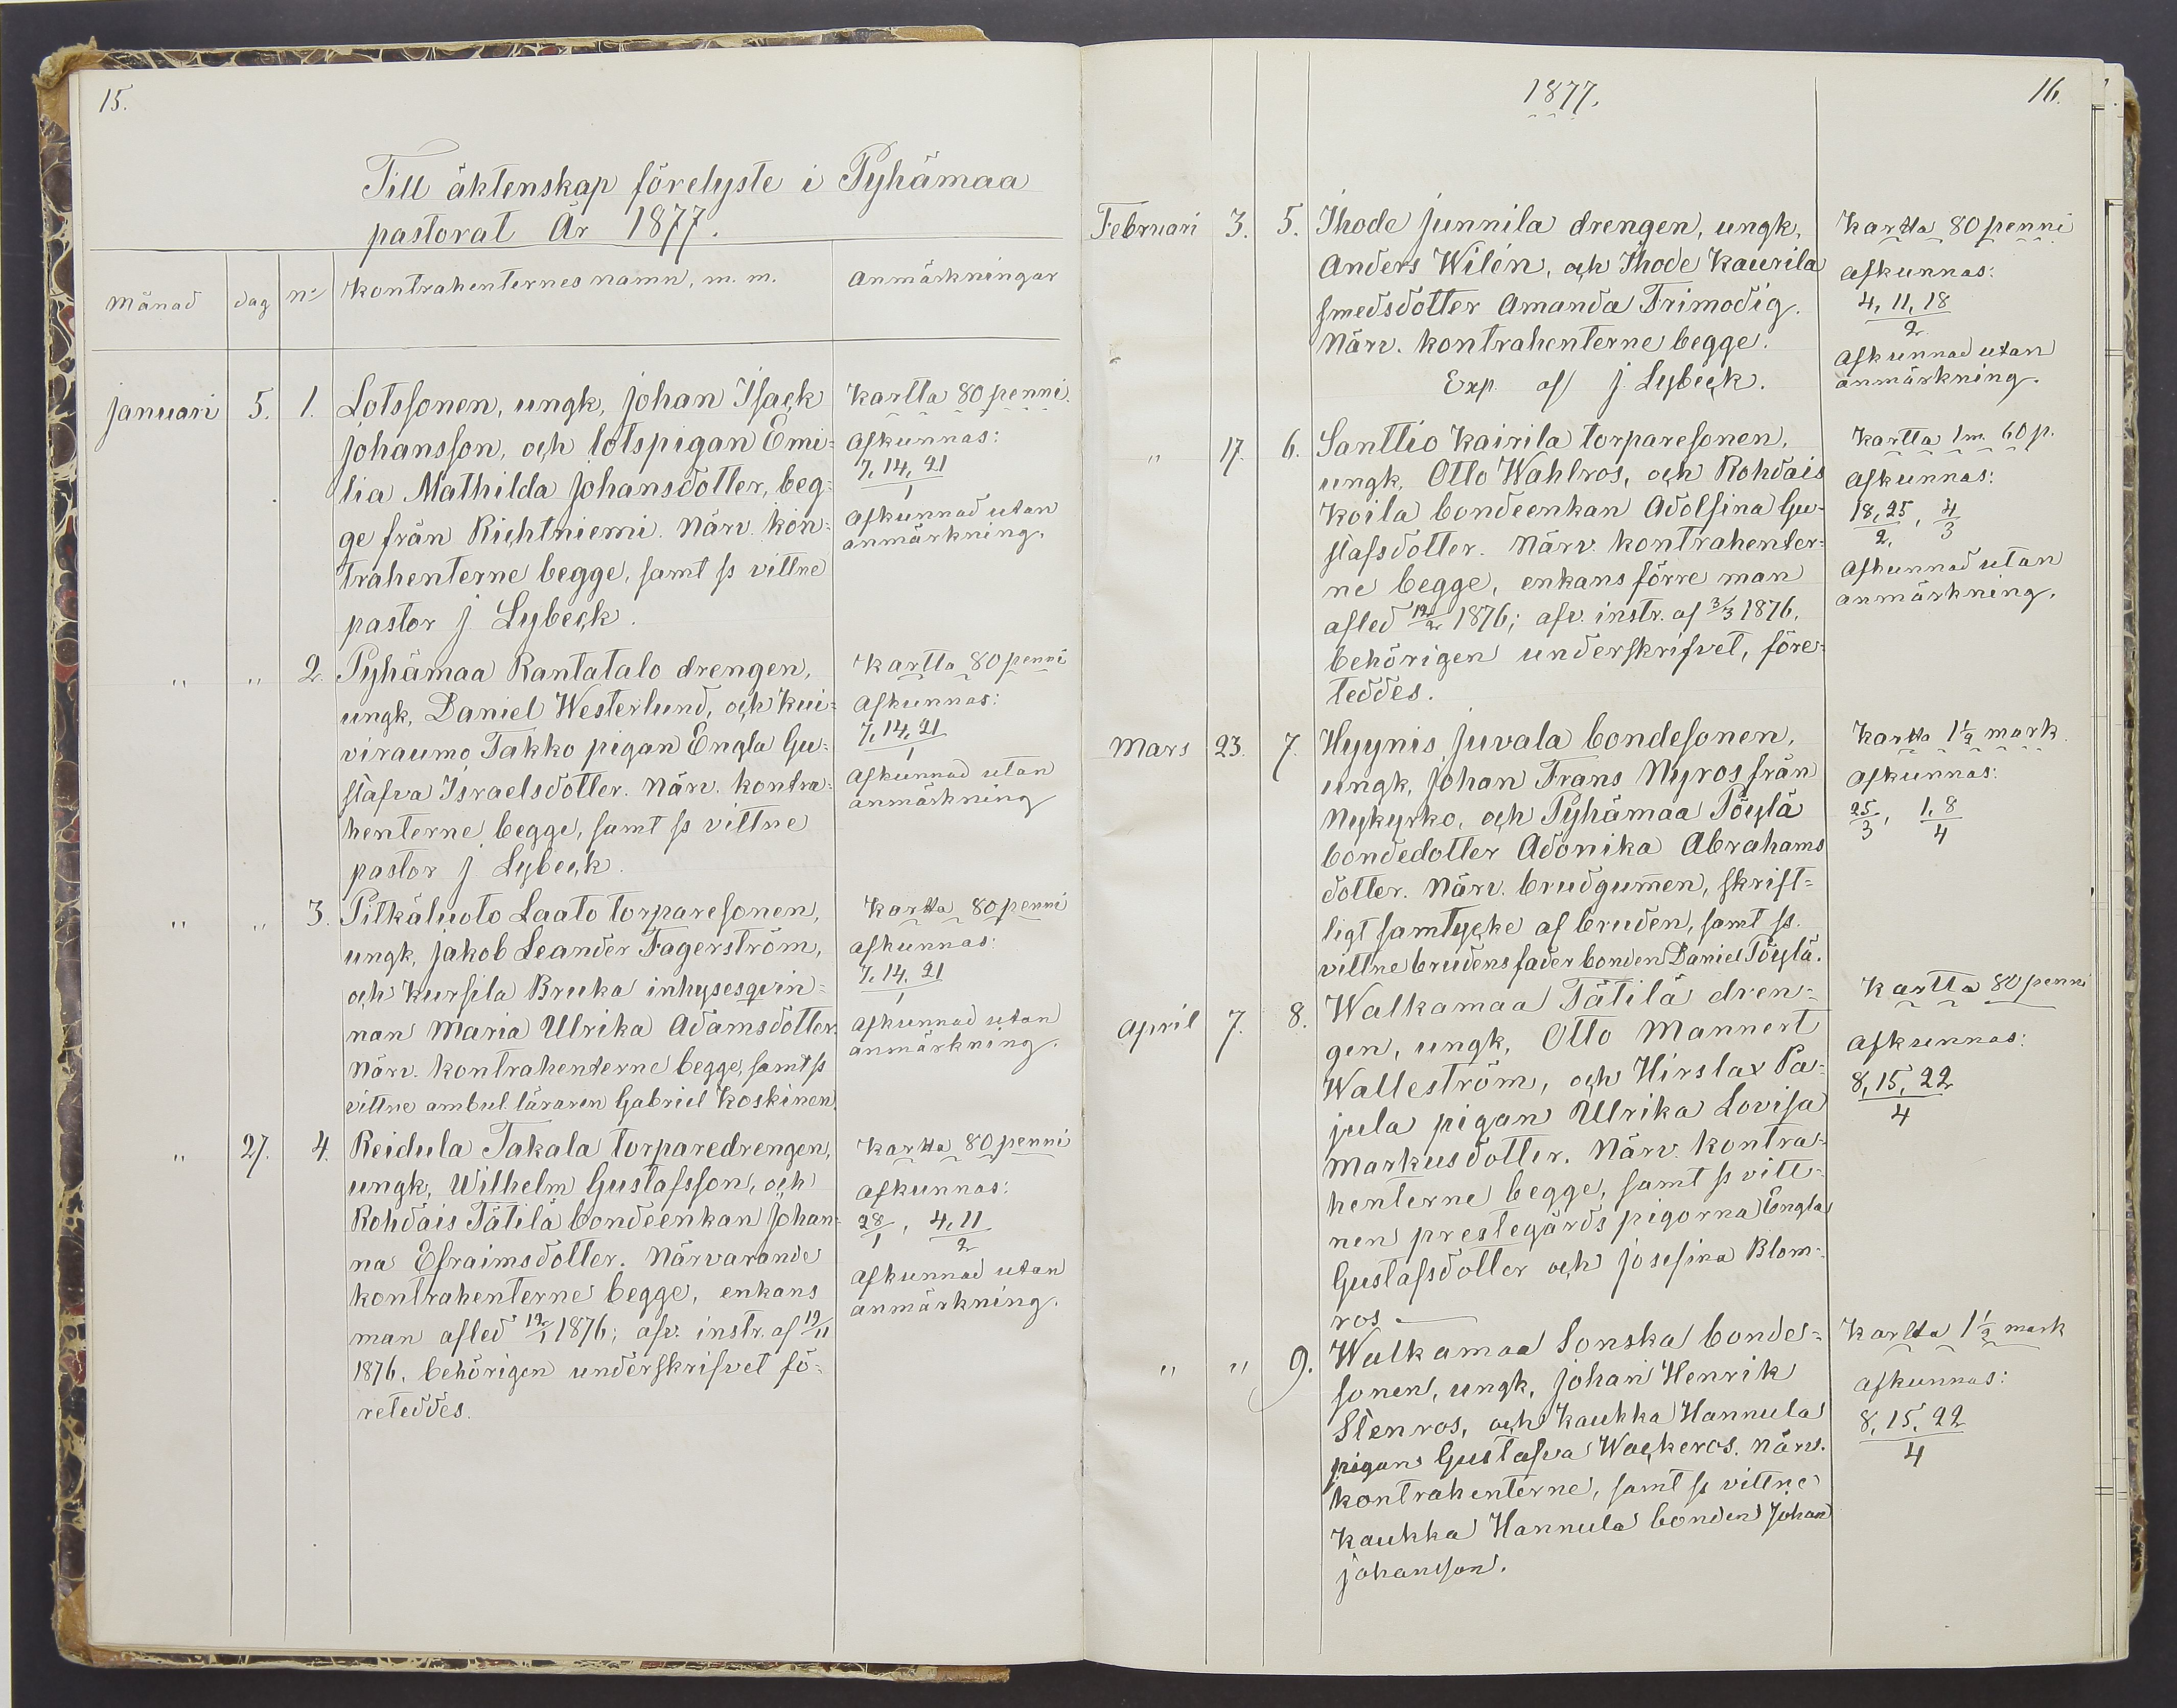 15.
Till äktenskap förelyste i Pyhämaa
pastorat År 1877.
Månad dag No Kontrahenternes namn, m. m. Anmärkningar
Januari 5. 1. Lotssonen, ungk, Johan Isack Kartta 80 penni.
Johansson, och lotspigan Emi= Afkunnas:
lia Mathilda Johansdotter, beg= 7, 14, 21/1
ge från Richtniemi. Närv. kon= Afkunnad utan
trahenterne begge, samt ss vittne anmärkning.
pastor J Lybeck.
" " 2. Pyhämaa Rantatalo drengen, Kartta 80 penni
ungk, Daniel Westerlund, och Kui= Afkunnas:
viraumo Takko pigan Engla Gu= 7, 14, 21/1
stafva Israelsdotter. Närv. kontra= Afkunnad utan
henterne begge, samt ss vittne anmärkning
pastor J Lybeck.
" " 3. Pitkäluoto Laato torparesonen, Kartta 80 penni
ungk, Jakob Leander Fagerström, Afkunnas:
och Kursila Bruka inhysesqvin= 7, 14, 21/1
nan Maria Ulrika Adamsdotter. Afkunnad utan
Närv. kontrahenterne begge, samt ss anmärkning.
vittne ambul. läraren Gabriel Koskinen.
" 27. 4. Reidula Takala torparedrengen, Kartta 80 penni
ungk, Wilhelm Gustafsson, och Afkunnas:
Rohdais Tätilä bondeenkan Johan= 28/1, 4, 11/2
na Efraimsdotter. Närvarande Afkunnad utan
kontrahenterne begge, enkans anmärkning.
man afled 12/1 1876; afv. instr. af 19/11
1876, behörigen underskrifvet fö=
reteddes.
1877. 16.
Februari 3. 5. Ihode Junnila drengen, ungk, Kartta 80 penni
Anders Wilén, och Ihode Kaurila Afkunnas:
smedsdotter Amanda Frimodig. 4, 11, 18/2
Närv. kontrahenterne begge. Afkunnad utan
Exp. af J. Lybeck. anmärkning.
" 17. 6. Santtio Kairila torparesonen, Kartta 1 m. 60 p.
ungk, Otto Wahlros, och Rohdais Afkunnas:
Koila bondeenkan Adolfina Gu= 18, 25/2, 4/3
stafsdotter. Närv. kontrahenter= Afkunnad utan
ne begge, enkans förre man anmärkning.
afled 12/2 1876; afv. instr. af 3/3 1876,
behörigen underskrifvet, före=
teddes.
Mars 23. 7. Hyynis Juvala bondesonen, Kartta 1 1/2 mark.
ungk, Johan Frans Nyros från Afkunnas:
Nykyrko, och Pyhämaa Töylä 25/3, 1, 8/4
bondedotter Adonika Abrahams
dotter. Närv. brudgum̄en, skrift=
ligt samtycke af bruden, samt ss.
vittne brudens fader bonden Daniel Töylä.
April 7. 8. Walkamaa Tätilä dren= Kartta 80 penni
gen, ungk, Otto Mannert Afkunnas:
Walleström, och Hirslax Pa= 8, 15, 22/4
jula pigan Ulrika Lovisa
Markusdotter. Närv. kontra=
henterne begge, samt ss vitt=
nen prestegårds pigorna Engla
Gustafsdotter och Josefina Blom=
ros.
" " 9. Walkamaa Sonska bonde= Kartta 1 1/2 mark
sonen, ungk, Johan Henrik Afkunnas:
Stenros, och Kaukka Hannula 8, 15, 22/4
pigan Gustafva Wackeros. Närv.
kontrahenterne, samt ss vittne
Kaukka Hannula bonden Johan
Johansson.